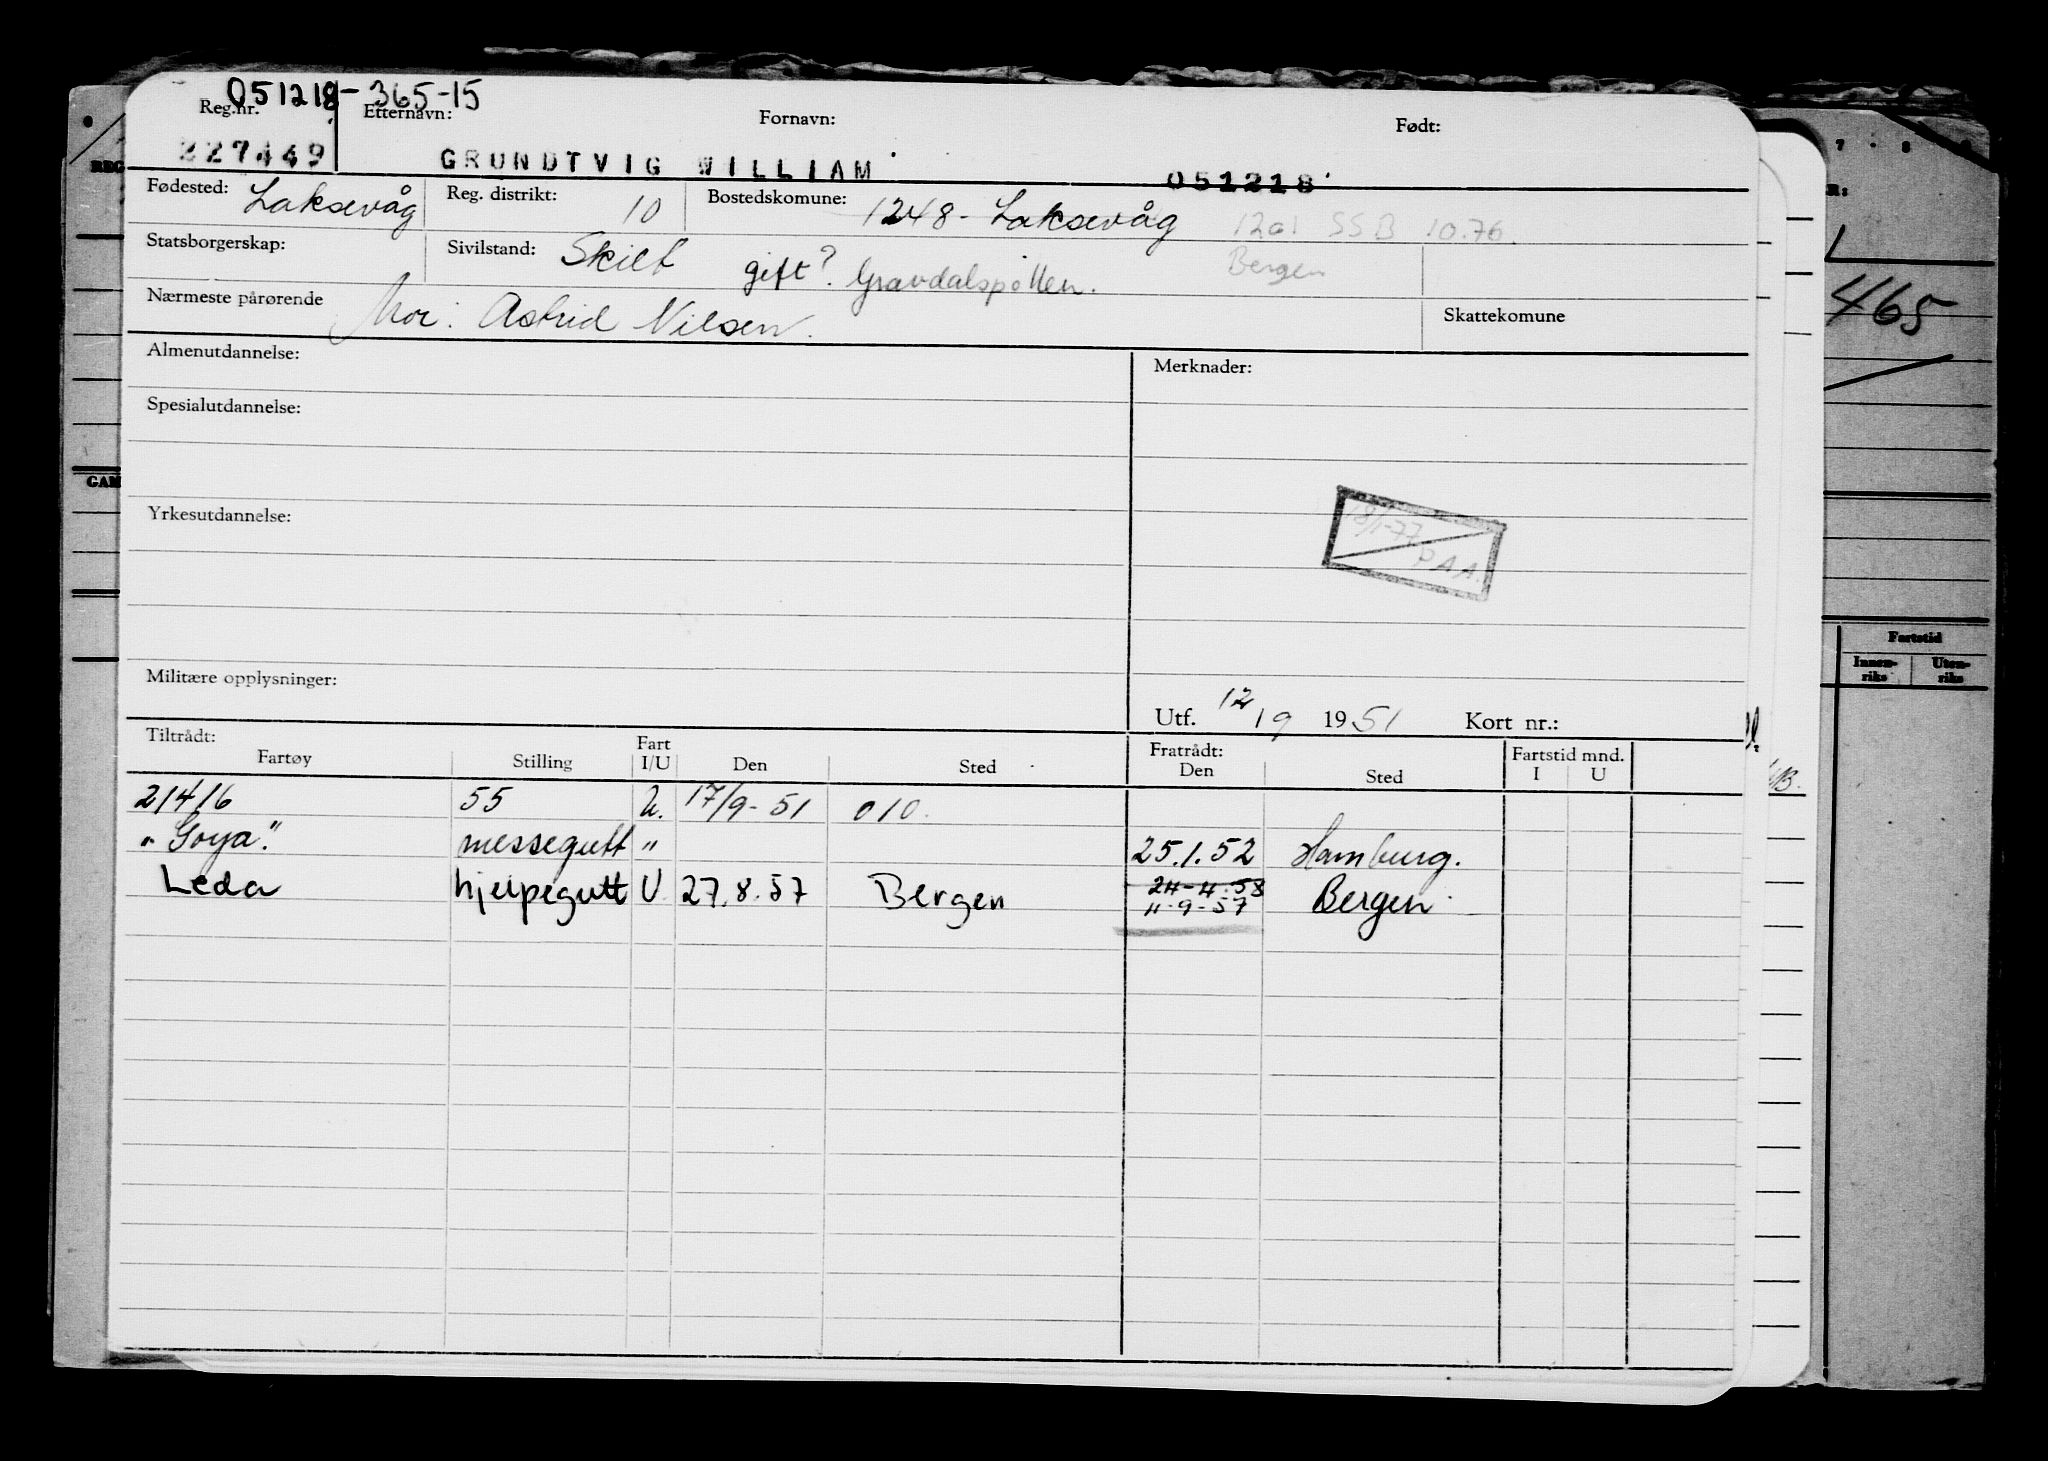 051218-365-15
Reg.nr. Etternavn: Fornavn: Født:
227449 GRUNDTVIG WILLIAM 051218
Fødested: Laksevåg Reg. distrikt: 10 Bostedskomune: 1248 - Laksevåg 1201 SSB 10.76.
Statsborgerskap: Sivilstand: Skilt gift? Gravdalspollen. Bergen
Nærmeste pårørende Mor: Astrid Nilsen. Skattekomune
Almenutdannelse: Merknader:
Spesialutdannelse:
Yrkesutdannelse:
18/1-77 P.A.A.
Militære opplysninger:
Utf. 12/9 1951 Kort nr.:
Tiltrådt: Fratrådt: Fartstid mnd.
Fartøy Stilling Fart I/U Den Sted Den Sted I U
21416 55 U. 17/9-51 010.
"Goya." messegutt " 25.1.52 Hamburg.
Leda hjelpegutt U. 27.8.57 Bergen 24-4-58 Bergen
11-9-57
REG
GAM
7 8
R:
465
Fartstid
Innen-riks Uten-riks